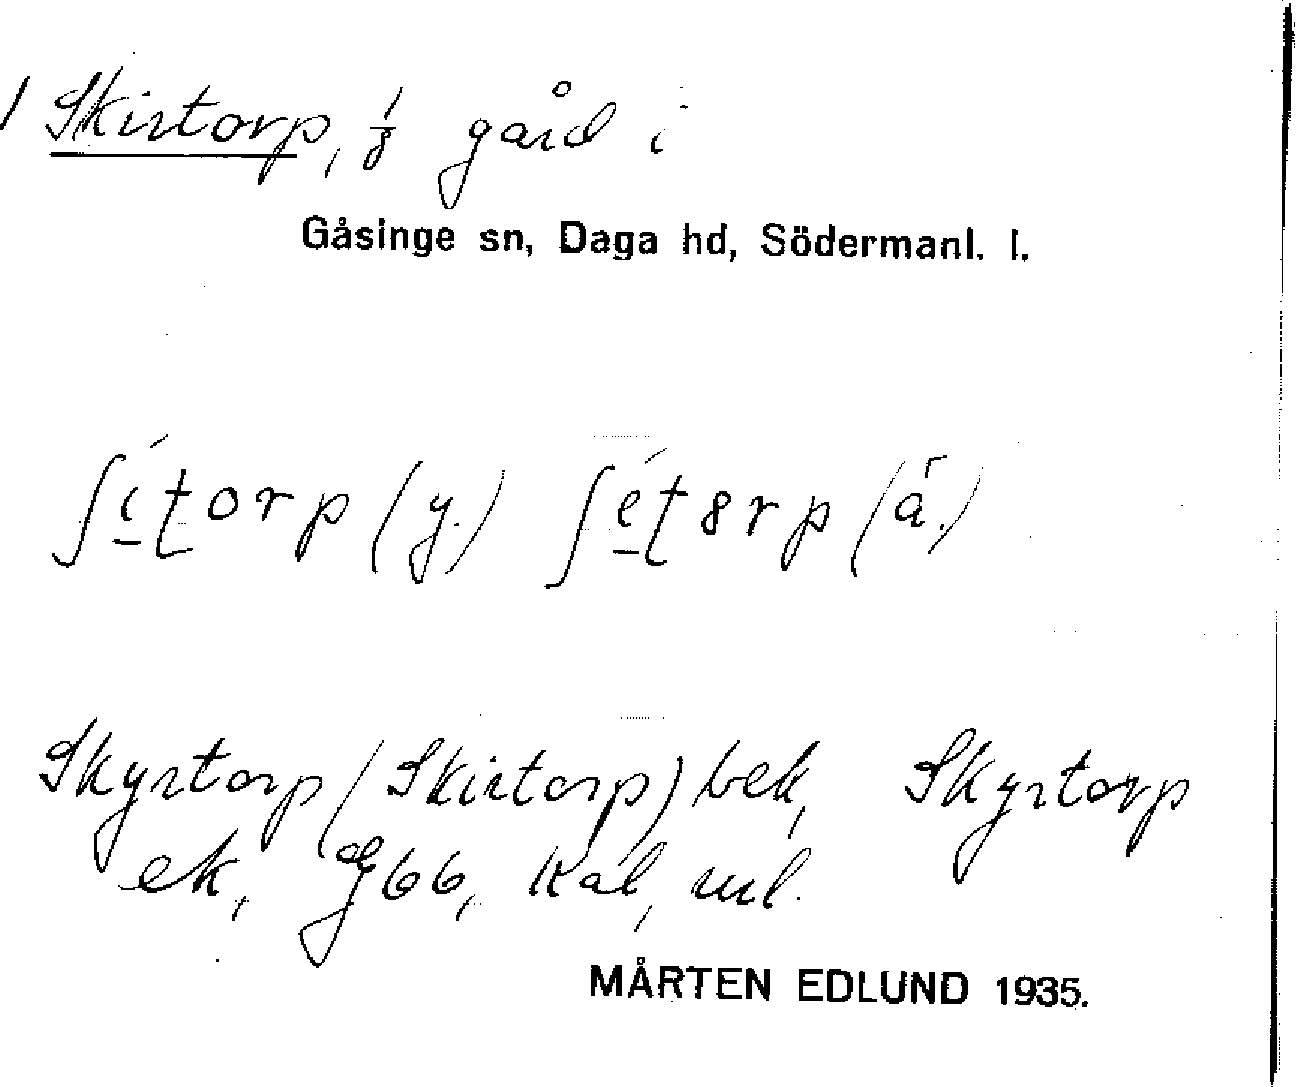 1 Skirtorp, 1/8 gård i
Gåsinge sn, Daga hd, Södermanl. l.
ʃí̠ṭorp (y.) ʃé̠ṭ8rp (ä.)
Skyrtorp (Skirtorp) bek, Skyrtorp
ek, G 66, Kal, ml.
MÅRTEN EDLUND 1935.